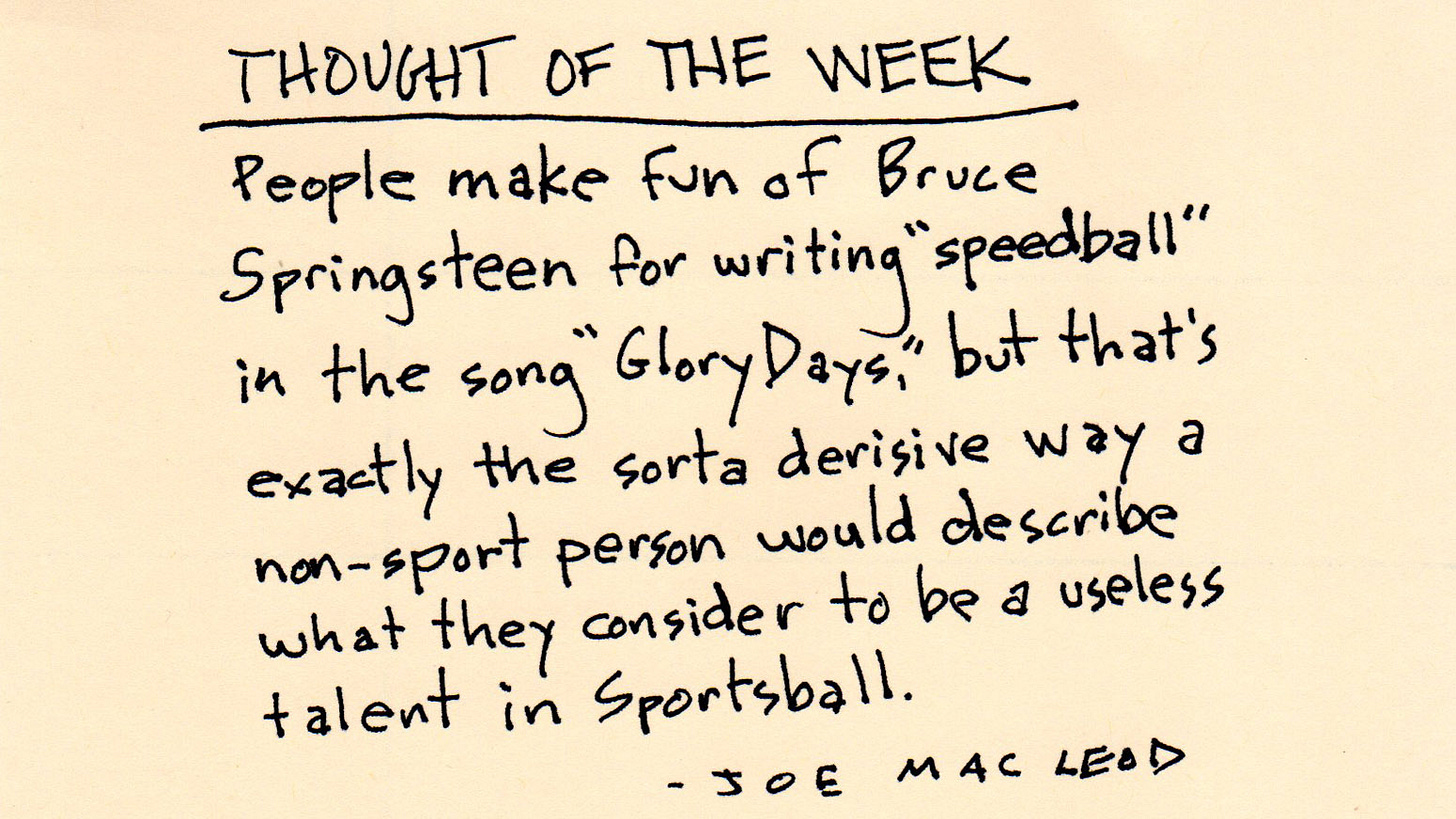 THOUGHT OF THE WEEK
People make fun of Bruce
Springsteen for writing “speedball”
in the song “Glory Days,” but that's
exactly the sorta derisive way a
non-sport person would describe
what they consider to be a useless
talent in Sportsball.
- JOE MAC LEOD